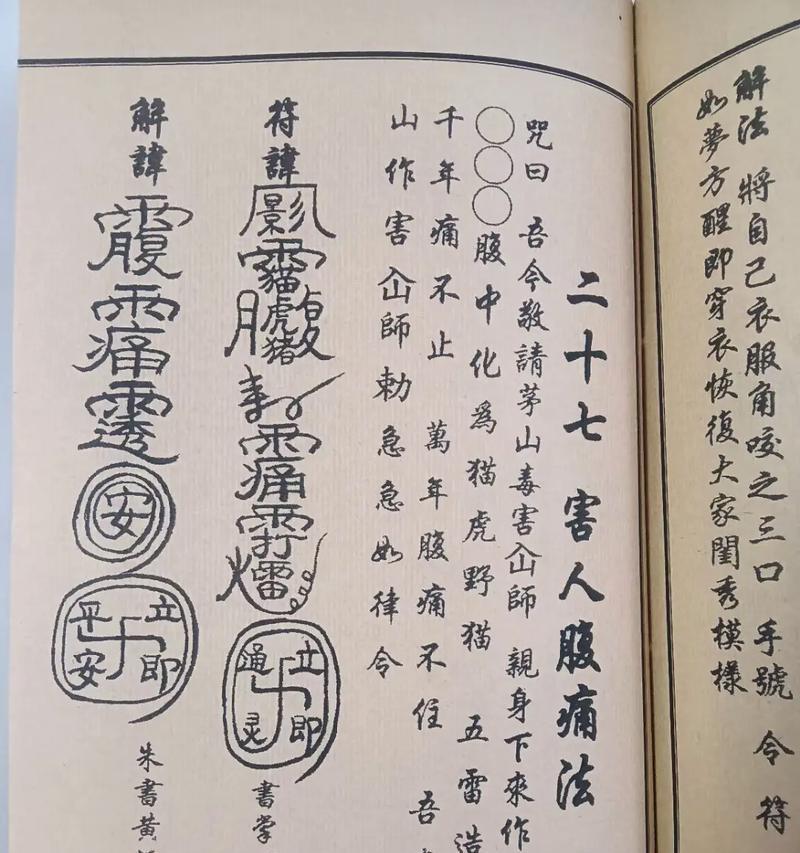 解法 將自己衣服角咬之三口 手號 令 符
如夢方醒即穿衣恢復大家閨秀模樣
二十七 害人腹痛法
咒曰 吾今敬請茅山毒害仚師 親身下來作
○○○腹中化為猫虎野猫 五雷造
千年痛不止 萬年腹痛不住 吾
山作害仚師勅急急如律令
符諱
影
貓虎猪
痛
立即通灵
書掌
解諱
腹
痛
透
安
立即平安
朱書黄